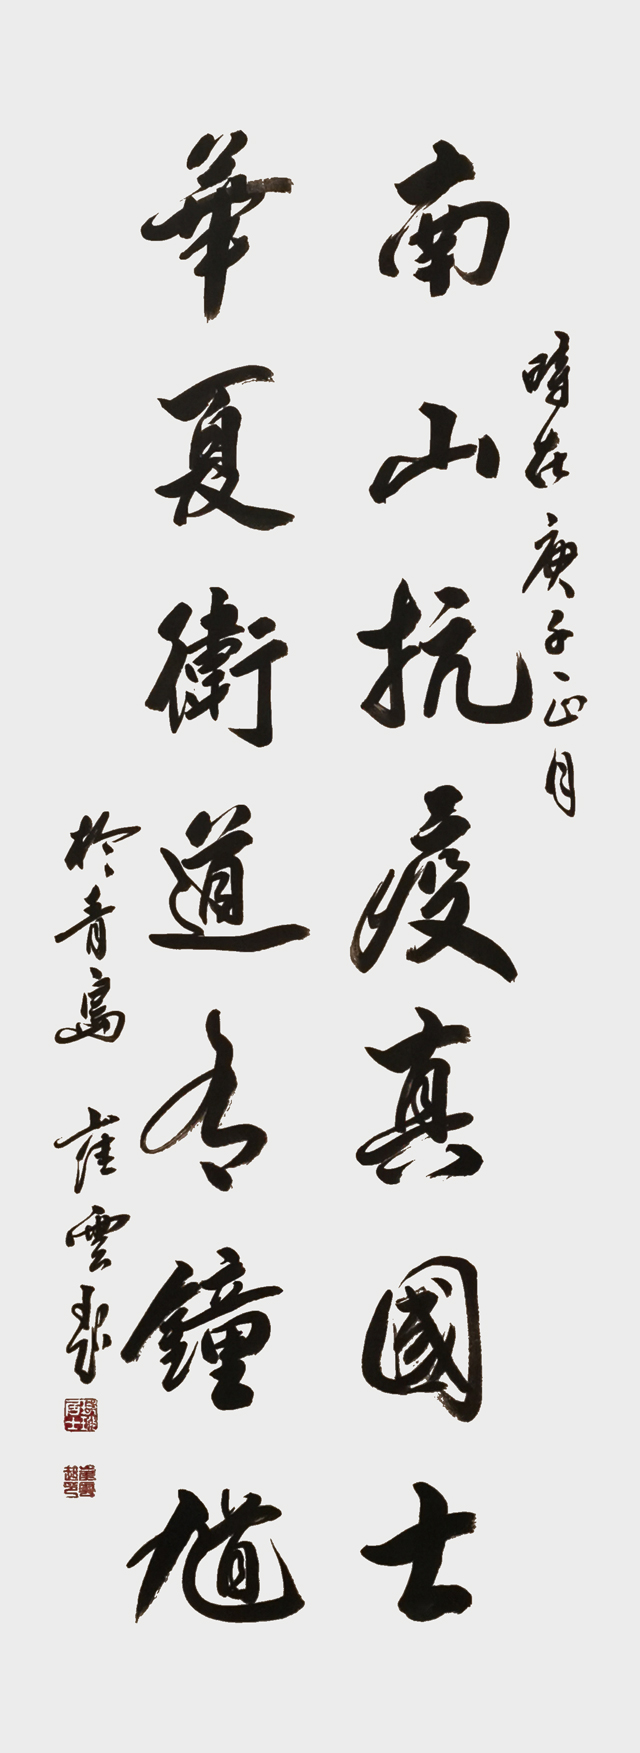 時在庚子正月
南山抗疫真國士
華夏衛道有鐘馗
於青島 崔雲超